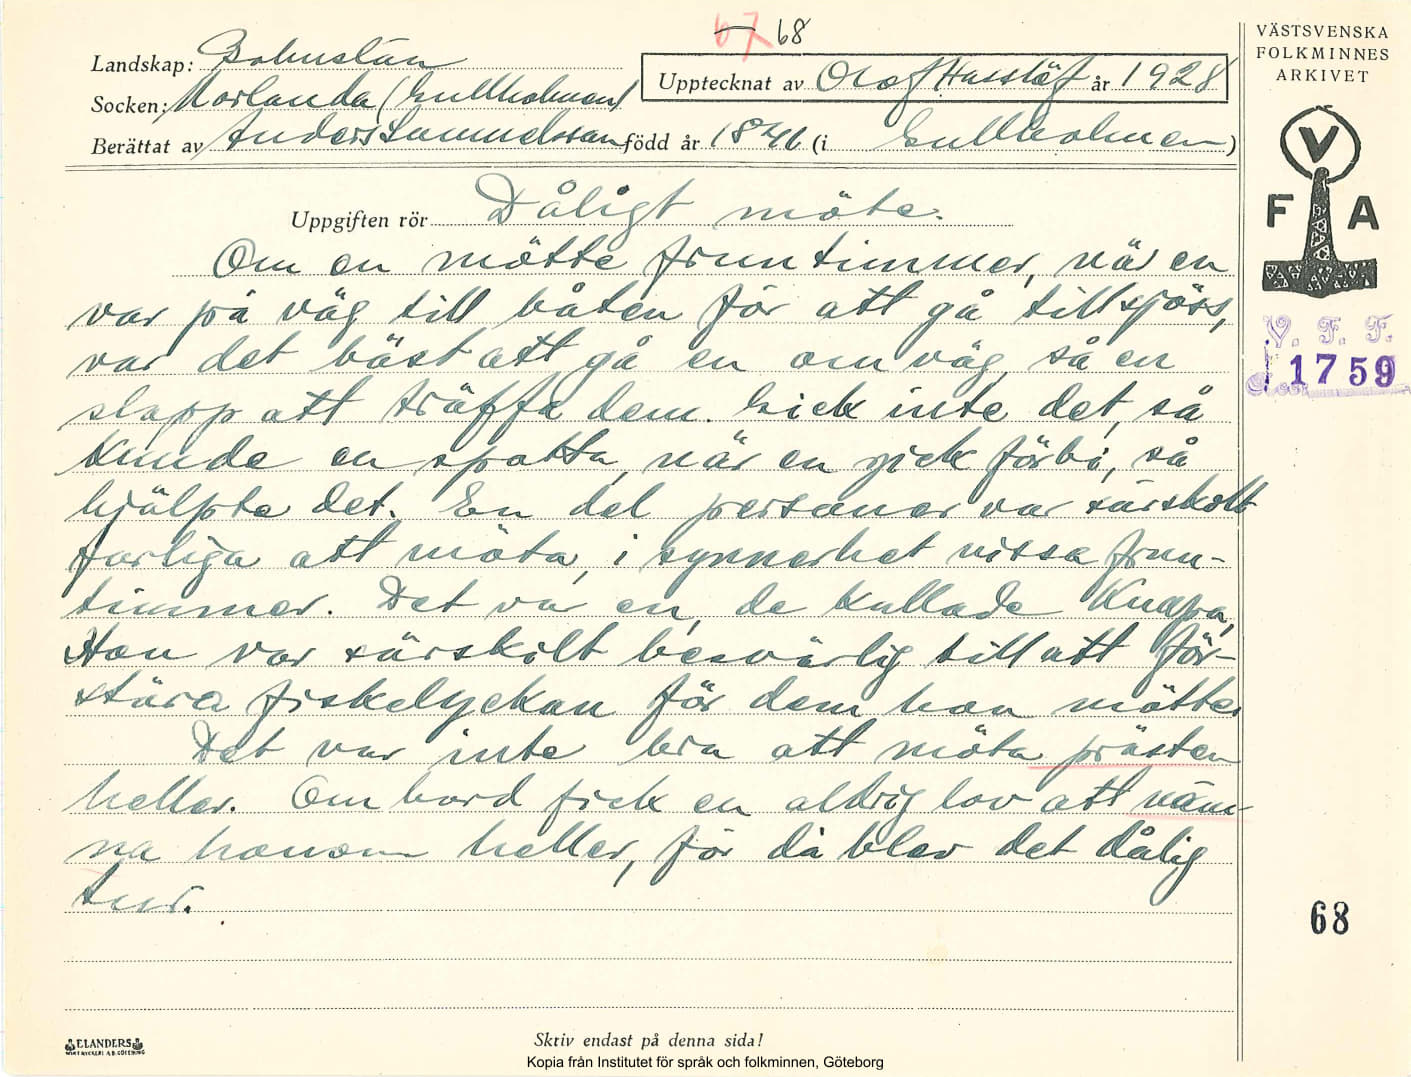 67 68
Landskap: Bohuslän
Socken: Morlanda (Gullholmen)
Upptecknat av Olof Hasslöf år 1928
Berättat av Anders Samuelsson född år 1846 (i Gullholmen)
Uppgiften rör Dåligt möte.
Om en mötte fruntimmer, när en
var på väg till båten för att gå till sjöss,
var det bäst att gå en om väg, så en
slapp att träffa dem. Gick inte det, så
kunde en spotta, när en gick förbi, så
hjälpte det. En del personer var särskilt
farliga att möta, i synnerhet vissa frun-
timmer. Det var en, de kallade Knapa,
Hon var särskilt besvärlig till att för-
störa fiskelyckan för dem hon mötte.
Det var inte bra att möta prästen
heller. Om bord fick en aldrig lov att näm-
na honom heller, för då blev det dålig
tur.
VÄSTSVENSKA
FOLKMINNES
ARKIVET
V
F A
V. F. F.
1759
68
ELANDERS
Skriv endast på denna sida!
Kopia från Institutet för språk och folkminnen, Göteborg